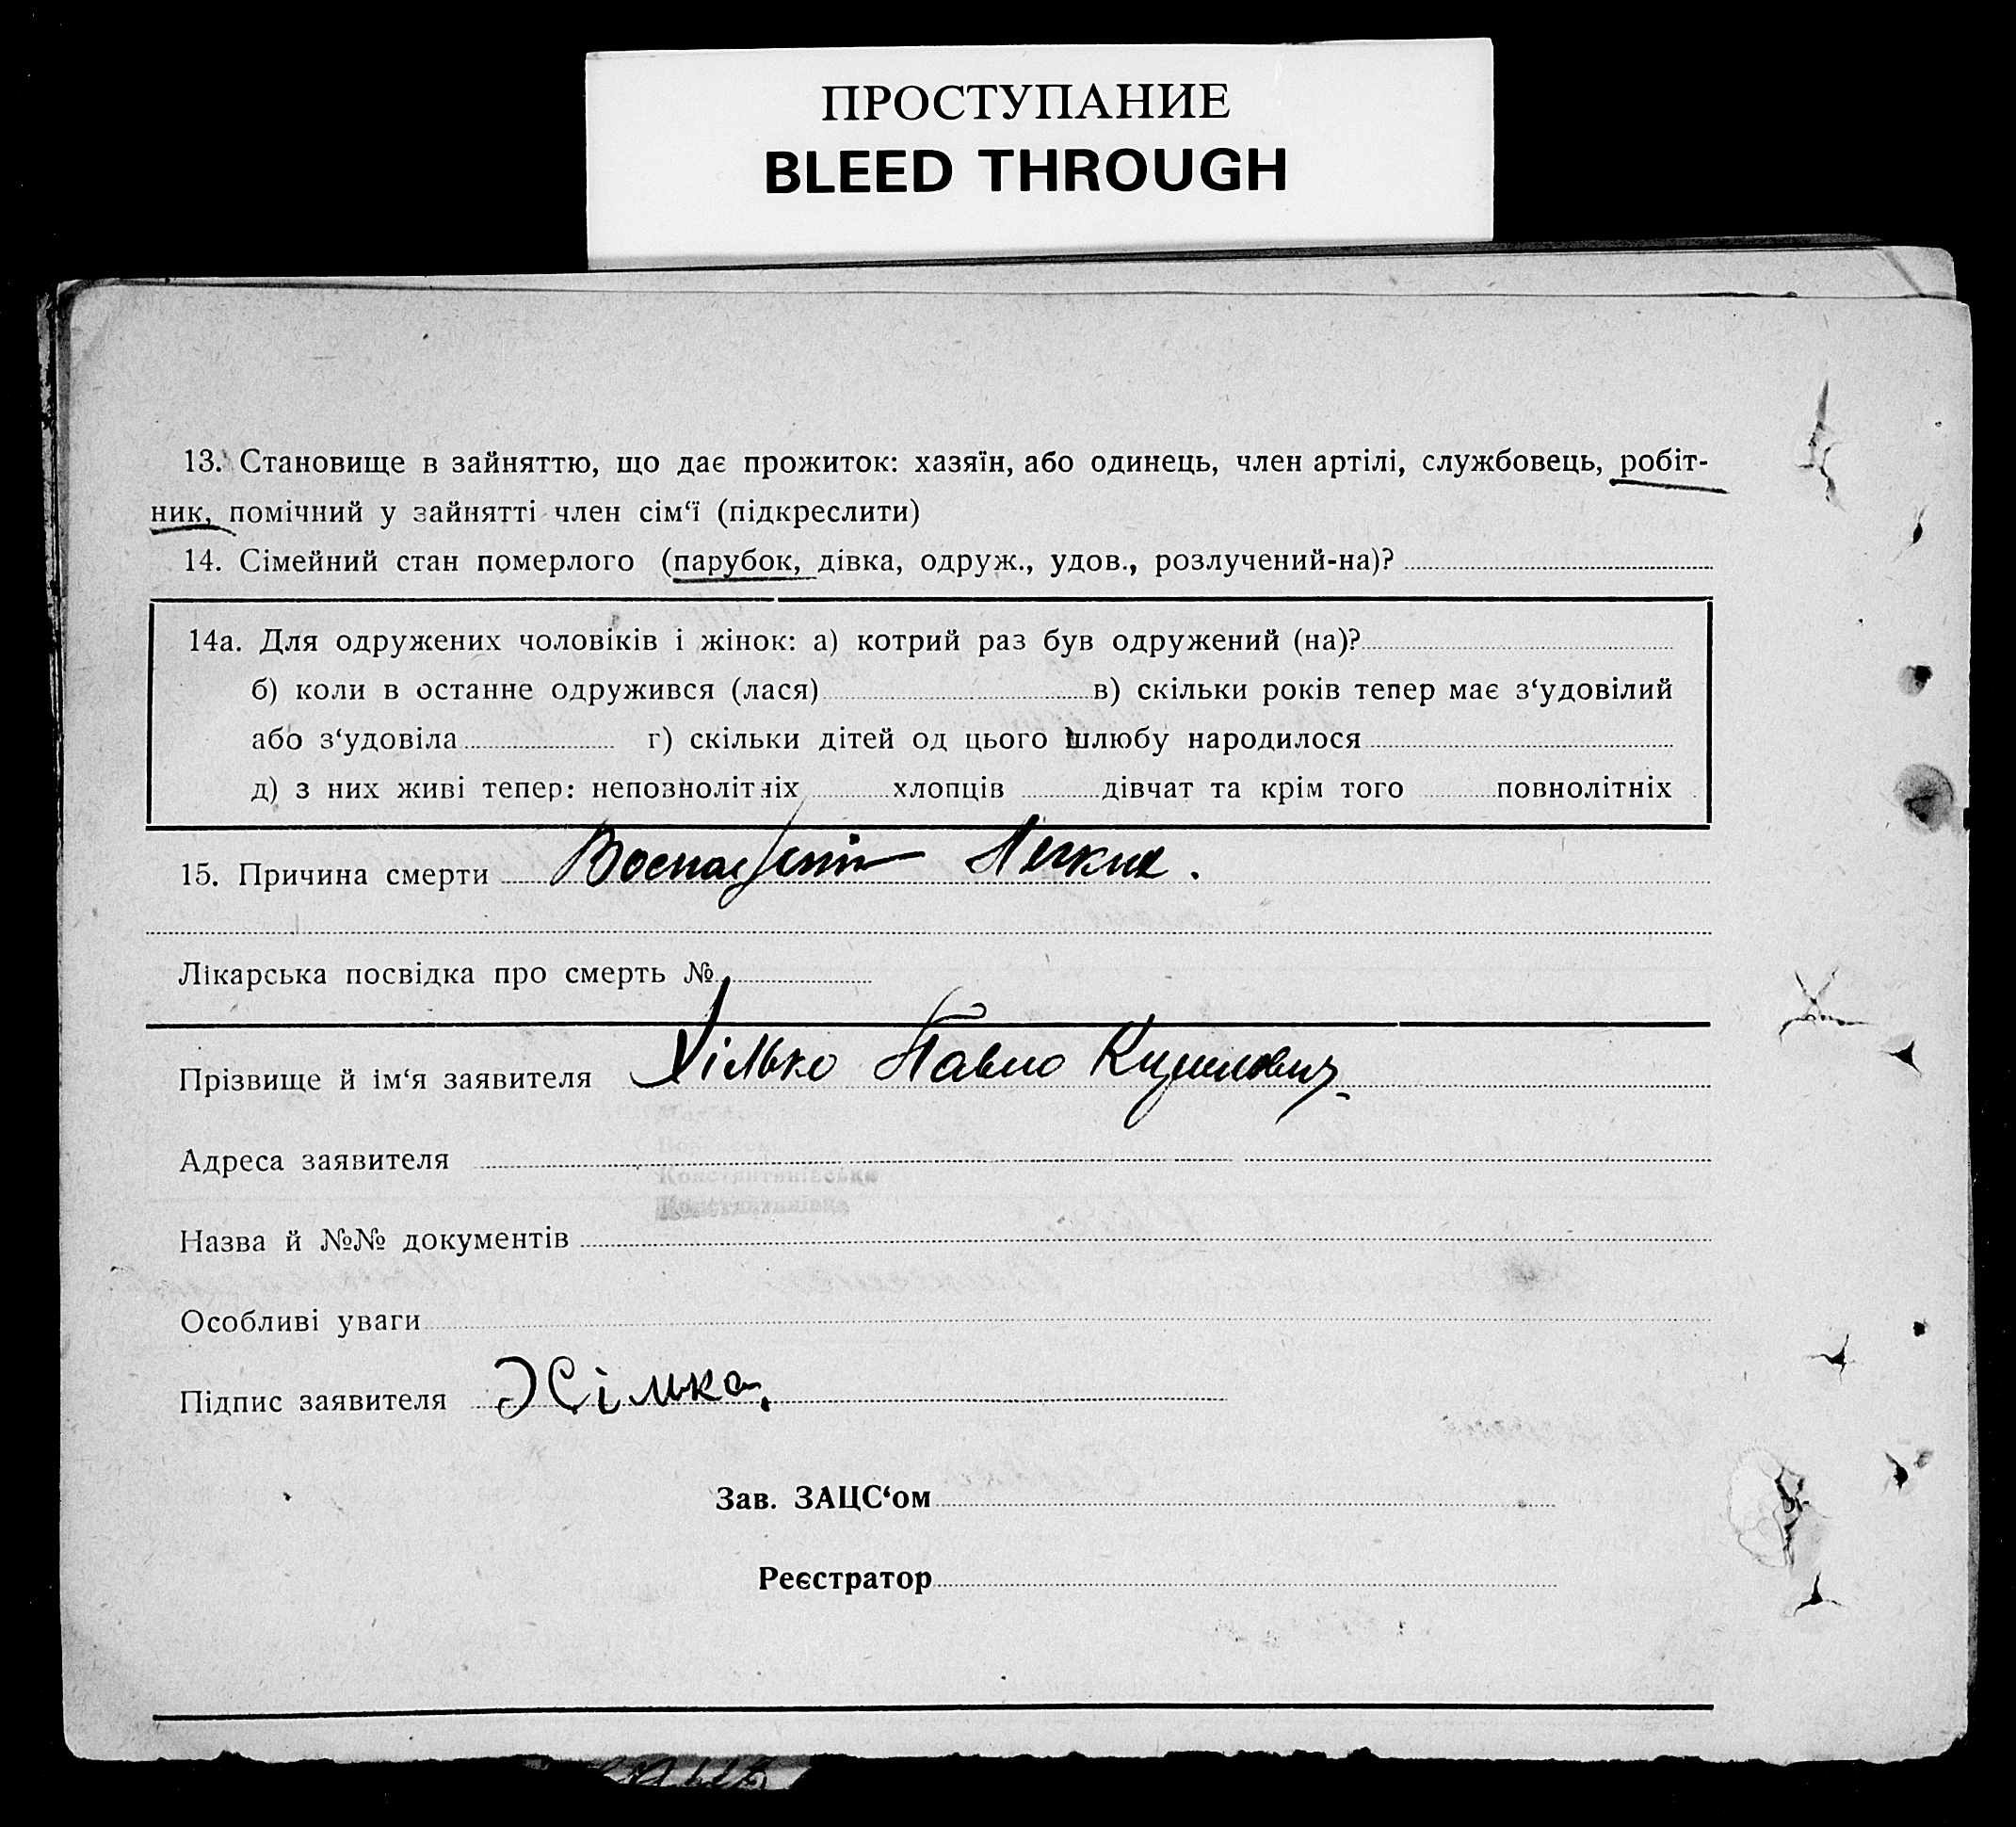 ПРОСТУПАНИЕ
BLEED THROUGH
13. Становище в зайняттю, що дає прожиток: хазяїн, або одинець, член артілі, службовець, робіт-
ник, помічний у зайнятті член сім‘ї (підкреслити)
14. Сімейний стан померлого (парубок, дівка, одруж., удов., розлучений-на)?
14а. Для одружених чоловіків і жінок: а) котрий раз був одружений (на)?
б) коли в останне одружився (лася) в) скільки років тепер має з‘удовілий
або з‘удовіла г) скільки дітей од цього шлюбу народилося
д) з них живі тепер: неповнолітніх хлопців дівчат та крім того повнолітніх
15. Причина смерти Легких.
Лікарська посвідка про смерть №
Прізвище й ім‘я заявителя Хілько Павло Кирилович
Адреса заявителя
Константинівська
Назва й №№ документів
Особливі уваги
Підпис заявителя Хілько
Зав. ЗАЦС‘ом
Реєстратор